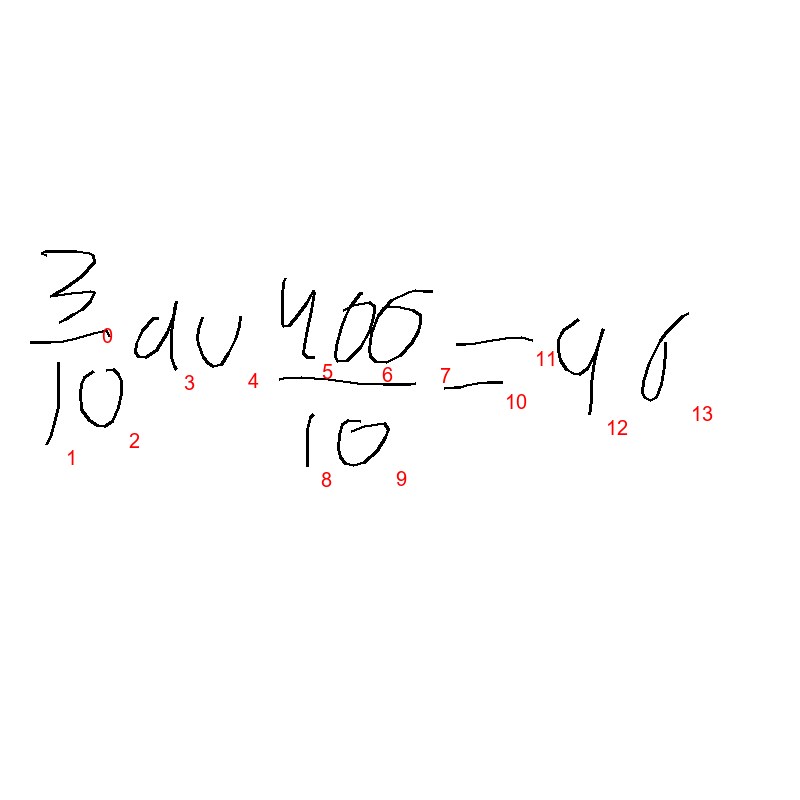 3/10 du 400/10 = 40
0 1 2 3 4 5 6 7 8 9 10 11 12 13